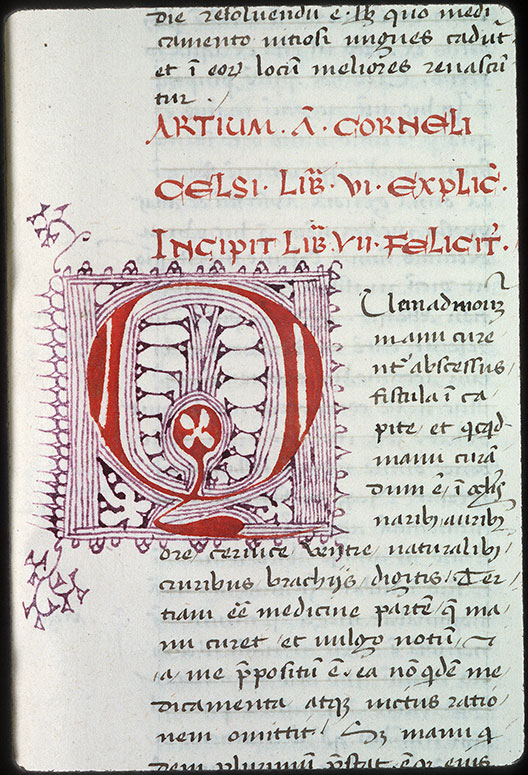 die resoluendū ē · Ib; quo medi
camento uitiosi ungues cadūt
et ī eorꝝ locū meliores renascū
tur .
ARTIUM . Ā . CORNELI
CELSI . LIB̄ . VI . EXPLIC̄ .
INCIPIT LIB̄ . VII . FELICIT̄ .
Quemadmodū
manu cure
nt᷑ abscessus
fistula ī ca
pite / et qcqd
manu curā
dum ē / ī oclis
narib; aurib;
ore ceruice uentre / naturalib;
cruribus brachijs / digitis . Ter
tiam eē medicine partē q̄ ma
nu curet / et uulgo notū /
a me p̄positū ē . ea nō qdē me
dicamenta atq; uictus ratio
nem omittit / Sꝫ manu q
dem plurimū p̄stat ē q eius